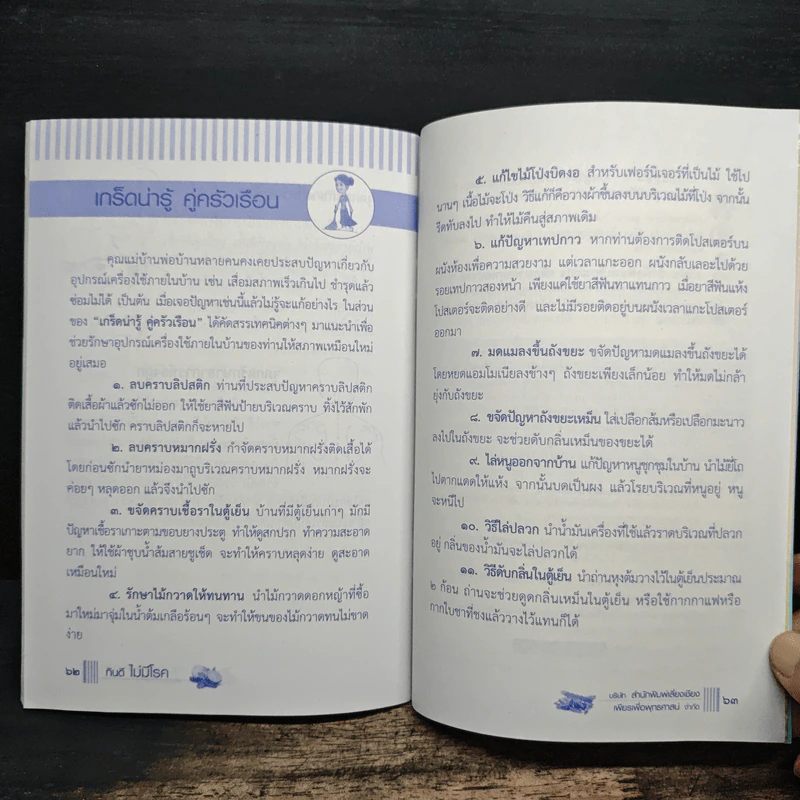 เกร็ดน่ารู้ คู่ครัวเรือน
คุณแม่บ้านพ่อบ้านหลายคนคงเคยประสบปัญหาเกี่ยวกับ
อุปกรณ์เครื่องใช้ภายในบ้าน เช่น เสื่อมสภาพเร็วเกินไป ชำรุดแล้ว
ซ่อมไม่ได้ เป็นต้น เมื่อเจอปัญหาเช่นนี้แล้วไม่รู้จะแก้อย่างไร ในส่วน
ของ “เกร็ดน่ารู้ คู่ครัวเรือน” ได้คัดสรรเทคนิคต่างๆ มาแนะนำเพื่อ
ช่วยรักษาอุปกรณ์เครื่องใช้ภายในบ้านของท่านให้สภาพเหมือนใหม่
อยู่เสมอ
๑. ลบคราบลิปสติก ท่านที่ประสบปัญหาคราบลิปสติก
ติดเสื้อผ้าแล้วซักไม่ออก ให้ใช้ยาสีฟันป้ายบริเวณคราบ ทิ้งไว้สักพัก
แล้วนำไปซัก คราบลิปสติกก็จะหายไป
๒. ลบคราบหมากฝรั่ง กำจัดคราบหมากฝรั่งติดเสื้อได้
โดยก่อนซักนำยาหม่องมาถูบริเวณคราบหมากฝรั่ง หมากฝรั่งจะ
ค่อยๆ หลุดออก แล้วจึงนำไปซัก
๓. ขจัดคราบเชื้อราในตู้เย็น บ้านที่มีตู้เย็นเก่าๆ มักมี
ปัญหาเชื้อราเกาะตามขอบยางประตู ทำให้ดูสกปรก ทำความสะอาด
ยาก ให้ใช้ผ้าชุบน้ำส้มสายชูเช็ด จะทำให้คราบหลุดง่าย ดูสะอาด
เหมือนใหม่
๔. รักษาไม้กวาดให้ทนทาน นำไม้กวาดดอกหญ้าที่ซื้อ
มาใหม่มาจุ่มในน้ำต้มเกลือร้อนๆ จะทำให้ขนของไม้กวาดทนไม่ขาด
ง่าย
๖๒ กินดี ไม่มีโรค
๕. แก้ไขไม้โป่งบิดงอ สำหรับเฟอร์นิเจอร์ที่เป็นไม้ ใช้ไป
นานๆ เนื้อไม้จะโป่ง วิธีแก้ก็คือวางผ้าขึ้นลงบนบริเวณไม้ที่โป่ง จากนั้น
รีดทับลงไป ทำให้ไม้คืนสู่สภาพเดิม
๖. แก้ปัญหาเทปกาว หากท่านต้องการติดโปสเตอร์บน
ผนังห้องเพื่อความสวยงาม แต่เวลาแกะออก ผนังกลับเลอะไปด้วย
รอยเทปกาวสองหน้า เพียงแค่ใช้ยาสีฟันทาแทนกาว เมื่อยาสีฟันแห้ง
โปสเตอร์จะติดอย่างดี และไม่มีรอยติดอยู่บนผนังเวลาแกะโปสเตอร์
ออกมา
๗. มดแมลงขึ้นถังขยะ ขจัดปัญหามดแมลงขึ้นถังขยะได้
โดยหยดแอมโมเนียลงข้างๆ ถังขยะเพียงเล็กน้อย ทำให้มดไม่กล้า
ยุ่งกับถังขยะ
๘. ขจัดปัญหาถังขยะเหม็น ใส่เปลือกส้มหรือเปลือกมะนาว
ลงไปในถังขยะ จะช่วยดับกลิ่นเหม็นของขยะได้
๙. ไล่หนูออกจากบ้าน แก้ปัญหาหนูชุกชุมในบ้าน นำไม้ยี่โถ
ไปตากแดดให้แห้ง จากนั้นบดเป็นผง แล้วโรยบริเวณที่หนูอยู่ หนู
จะหนีไป
๑๐. วิธีไล่ปลวก นำน้ำมันเครื่องที่ใช้แล้วราดบริเวณที่ปลวก
อยู่ กลิ่นของน้ำมันจะไล่ปลวกได้
๑๑. วิธีดับกลิ่นในตู้เย็น นำถ่านหุงต้มวางไว้ในตู้เย็นประมาณ
๒ ก้อน ถ่านจะช่วยดูดกลิ่นเหม็นในตู้เย็น หรือใช้กากกาแฟหรือ
กากใบชาที่ชงแล้ววางไว้แทนก็ได้
บริษัท สำนักพิมพ์เลี่ยงเชียง
เพียรเพื่อพุทธศาสน์ จำกัด ๖๓